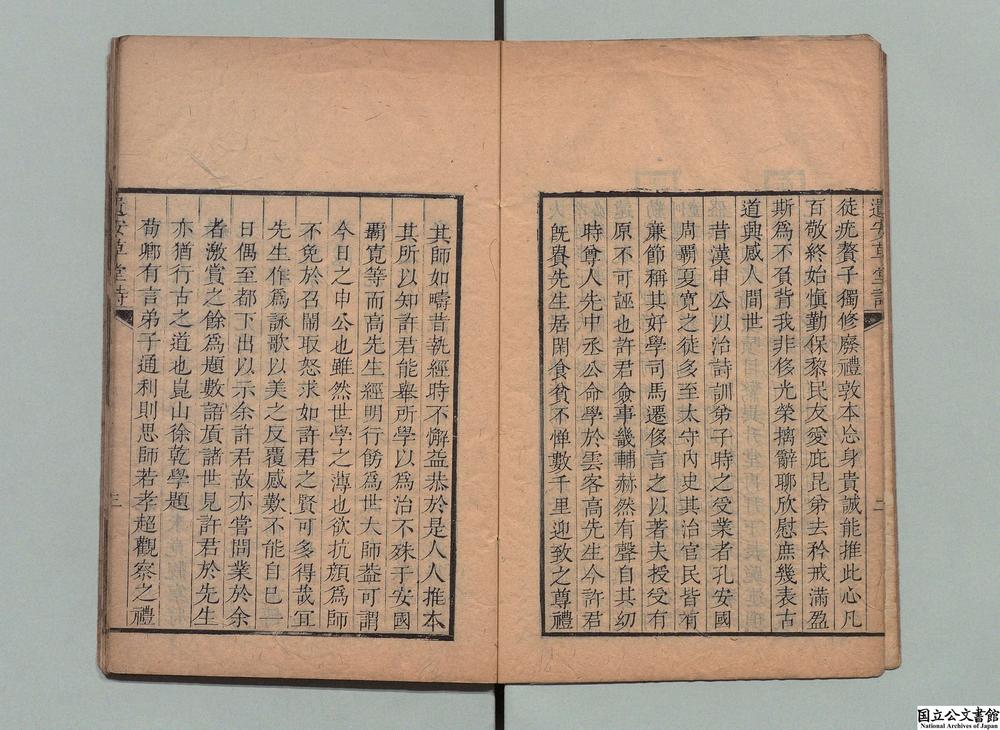 遺安草堂詩
徒疣贅子獨修廢禮敦本忘身貴誠能推此心凡
百敬終始慎勤保黎民友愛庇昆弟去矜戒滿盈
斯爲不負昔我非侈光榮摛辭聊欣慰庶幾表古
道興感人間世
昔漢申公以治詩訓弟子時之受業者孔安國
周霸夏寬之徒多至太守內史其治官民皆有
亷節稱其好學司馬遷侈言之以著夫授受有
原不可誣也許君僉事畿輔赫然有聲自其幼
時尊人先中丞公命學於雲客高先生今許君
旣貴先生居閑食貧不憚數千里迎致之尊禮
二
其師如疇昔執經時不懈益恭於是人人推本
其所以知許君能舉所學以爲治不殊于安國
霸寬等而高先生經明行飭爲世大師葢可謂
今日之申公也雖然世學之薄也欲抗顔爲師
不免於召閙取怒求如許君之賢可多得哉冝
先生作爲詠歌以美之反覆感歎不能自已一
日偶至都下出以示余許君故亦嘗問業於余
者激賞之餘爲題數語頂諸世見許君於先生
亦猶行古之道也崑山徐乾學題
荀卿有言弟子通利則思師若孝超觀察之禮
遺安草堂詩
三
国立公文書館
National Archives of Japan